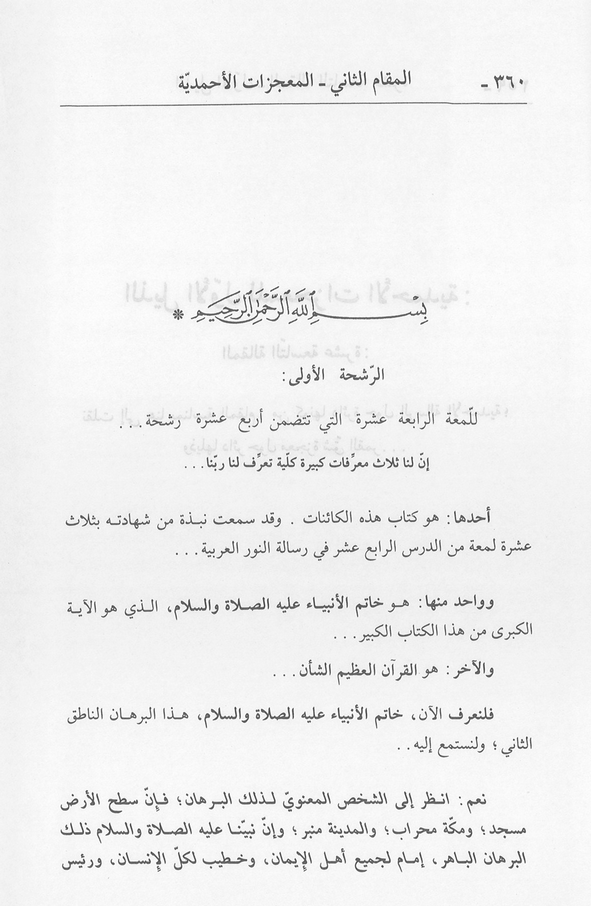 ٣٦٠ - المقام الثاني - المعجزات الأحمديّة
بِسْمِ اللَّهِ الرَّحْمَٰنِ الرَّحِيمِ *
الرّشحة الأولى:
للّمعة الرابعة عشرة التي تتضمن أربع عشرة رشحة...
إنّ لنا ثلاث معرِّفات كبيرة كلّية تعرِّف لنا ربّنا...
أحدها: هو كتاب هذه الكائنات . وقد سمعت نبذة من شهادته بثلاث
عشرة لمعة من الدرس الرابع عشر في رسالة النور العربية...
وواحد منها: هو خاتم الأنبياء عليه الصلاة والسلام، الذي هو الآية
الكبرى من هذا الكتاب الكبير...
والآخر: هو القرآن العظيم الشأن...
فلنعرف الآن، خاتم الأنبياء عليه الصلاة والسلام، هذا البرهان الناطق
الثاني؛ ولنستمع إليه..
نعم: انظر إلى الشخص المعنويّ لذلك البرهان؛ فإنّ سطح الأرض
مسجد؛ ومكّة محراب؛ والمدينة منبر؛ وإنّ نبيّنا عليه الصلاة والسلام ذلك
البرهان الباهر، إمام لجميع أهل الإيمان، وخطيب لكلّ الإنسان، ورئيس